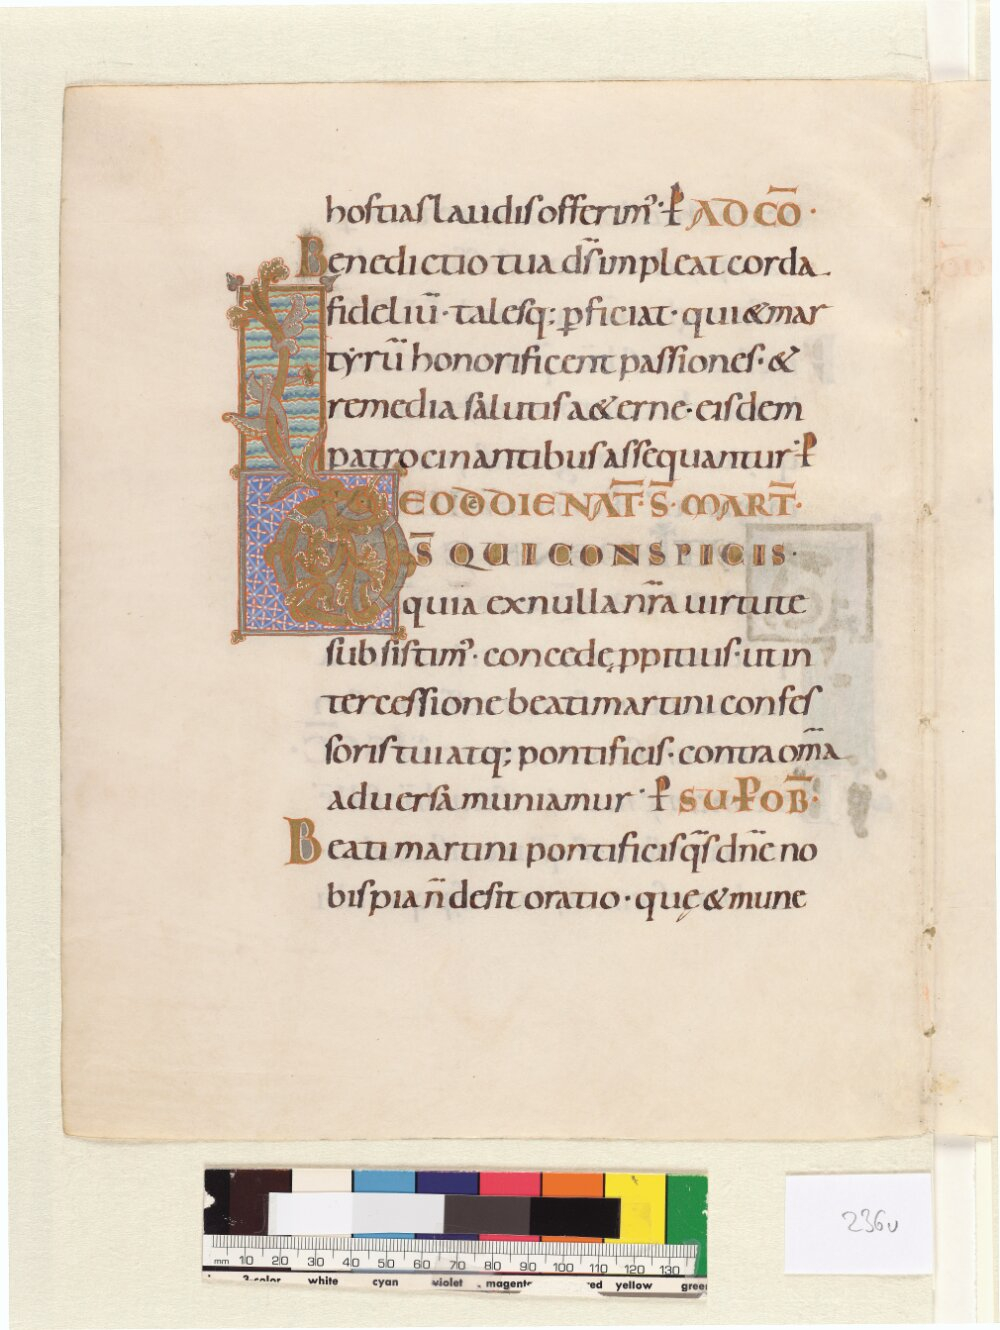 hostias laudis offerim᾽· ꝑ AD CŌ·
Benedictio tua d̄s impleat corda
fideliū· talesq; ꝑficiat· qui & mar
tyrū honorificent passiones· &
remedia salutis a&erne· eisdem
patrocinantibus assequantur· ꝑ
EODDIE NAT̄· S̄· MART̄·
D̄S QUI CONSPICIS·
quia ex nulla nr̄a uirtute
subsistim᾽· concedę ppitius· ut in
tercessione beati martini confes
soris tui atq; pontificis· contra om̄a
aduersa muniamur· ꝑ SUP OB̄·
Beati martini pontificis q̄s dn̄e no
bis pia n̄ desit oratio· quę & mune
236v
mm 10 20 30 40 50 60 70 80 90 100 110 120 130
3-color white cyan violet magenta red yellow green